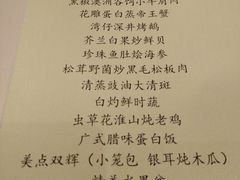 黑椒澳洲谷饲小牛肩肉
花雕蛋白蒸帝王蟹
湾仔深井烤鹅
芥兰白果炒鲜贝
珍珠鱼肚烩海参
松茸野菌炒黑毛松板肉
清蒸豉油大清斑
白灼鲜时蔬
虫草花淮山炖老鸡
广式腊味蛋白饭
美点双辉（小笼包 银耳炖木瓜）